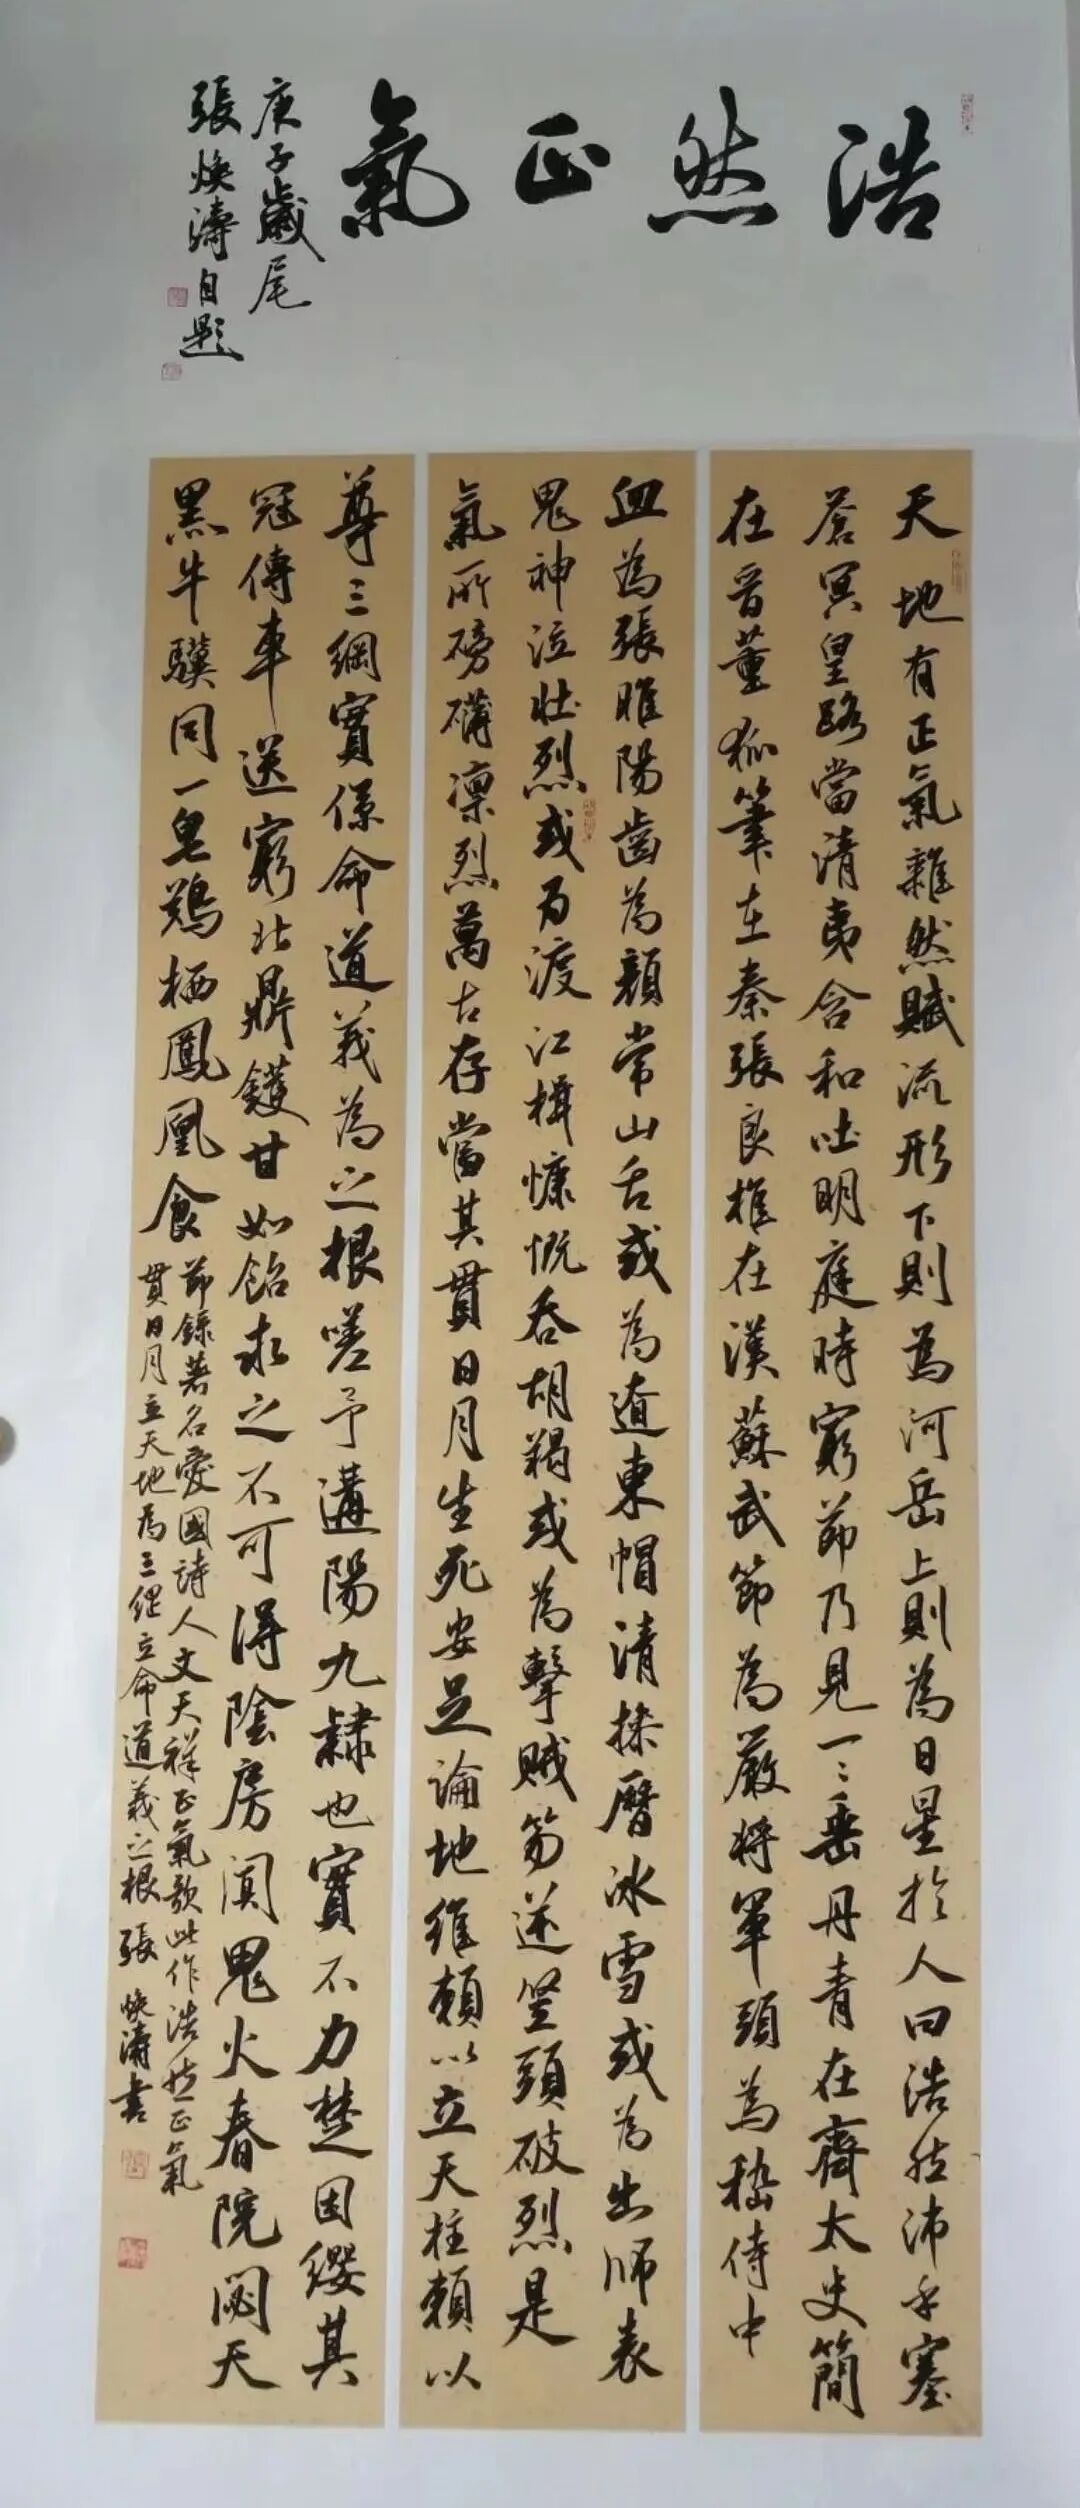 浩然正氣
庚子歲尾
張煥濤自題
天地有正氣雜然賦流形下則為河岳上則為日星於人曰浩然沛乎塞
蒼冥皇路當清夷含和吐明庭時窮節乃見一ミ垂丹青在齊太史簡
在晉董狐筆在秦張良椎在漢蘇武節為嚴將軍頭為嵇侍中
血為張睢陽齒為顏常山舌或為遼東帽清操厲冰雪或為出師表
鬼神泣壯烈或為渡江楫慷慨吞胡羯或為擊賊笏逆豎頭破烈是
氣所磅礴凜烈萬古存當其貫日月生死安足論地維賴以立天柱賴以
尊三綱實係命道義為之根嗟予遘陽九隸也實不力楚囚纓其
冠傳車送窮北鼎鑊甘如飴求之不可得陰房闃鬼火春院閟天
黑牛驥同一皂鷄栖鳳凰食
節錄著名愛國詩人文天祥正氣歌此作浩然正氣
貫日月立天地為三綱立命道義之根張煥濤書